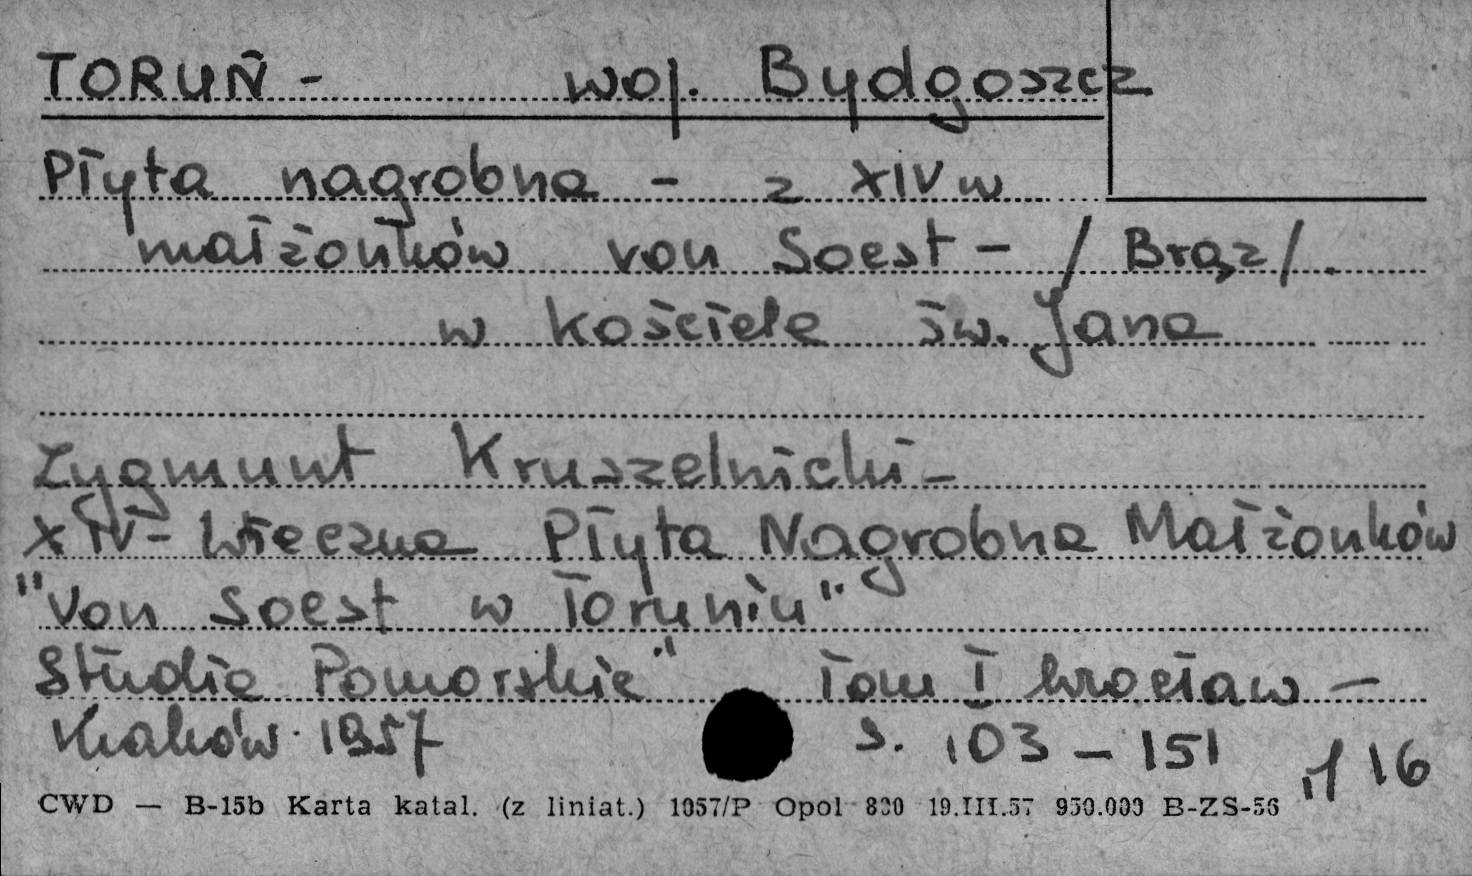 TORUŃ - woj. Bydgoszcz
Płyta nagrobna - z XIV w
małżonków von Soest - / Brąz /.
w kościele św. Jana
Zygmunt Kruszelnicki -
XIV - Wieczna Płyta Nagrobna Małżonków
"von Soest w Toruniu"
Studia Pomorskie" Tom I Wrocław -
Kraków 1957 s. 103 - 151 1/16
CWD — B-15b Karta katal. (z liniat.) 1057/P Opol 830 19.III.57 950.000 B-ZS-56